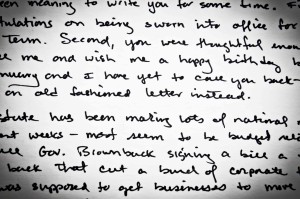 een meaning to write you for some time. F
tulations on being sworn into office for
Term. Second, you were thoughtful enou
e me and wish me a happy birthday b
nuary and I have yet to call you back-
an old fashioned letter instead.
tate has been making lots of national
nt weeks - most seem to be budget rela
Gov. Brownback signing a bill a
back that cut a bunch of corporate
was supposed to get businesses to move